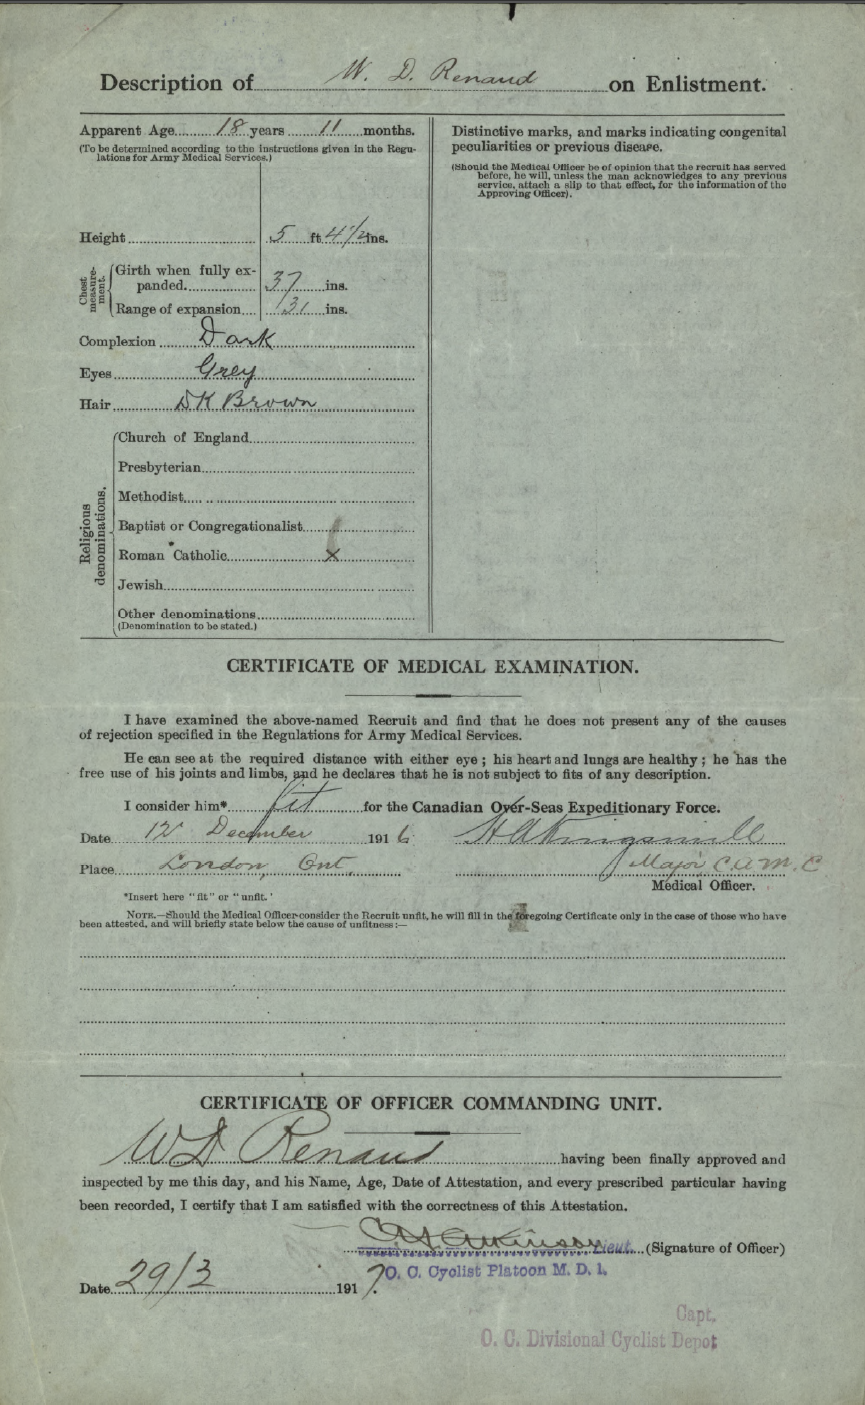 Description of W. D. Renaud on Enlistment.
Apparent Age 18 years 11 months.
(To be determined according to the instructions given in the Regu-
lations for Army Medical Services.)
Height 5 ft 4 1/2 ins.
Chest measure-ment.
Girth when fully ex-
panded 37 ins.
Range of expansion ins.
Complexion Dark
Eyes Grey
Hair DK Brown
Religious denominations.
Church of England
Presbyterian
Methodist
Baptist or Congregationalist
Roman Catholic X
Jewish
Other denominations
(Denomination to be stated.)
Distinctive marks, and marks indicating congenital
peculiarities or previous disease.
(Should the Medical Officer be of opinion that the recruit has served
before, he will, unless the man acknowledges to any previous
service, attach a slip to that effect, for the information of the
Approving Officer).
CERTIFICATE OF MEDICAL EXAMINATION.
I have examined the above-named Recruit and find that he does not present any of the causes
of rejection specified in the Regulations for Army Medical Services.
He can see at the required distance with either eye; his heart and lungs are healthy; he has the
free use of his joints and limbs, and he declares that he is not subject to fits of any description.
I consider him* fit for the Canadian Over-Seas Expeditionary Force.
Date 12 December 1916
Place London, Ont. Major C A M. C
Medical Officer.
*Insert here "fit" or "unfit.'
NOTE.—Should the Medical Officer consider the Recruit unfit, he will fill in the foregoing Certificate only in the case of those who have
been attested, and will briefly state below the cause of unfitness:—
CERTIFICATE OF OFFICER COMMANDING UNIT.
W D Renaud having been finally approved and
inspected by me this day, and his Name, Age, Date of Attestation, and every prescribed particular having
been recorded, I certify that I am satisfied with the correctness of this Attestation.
Atkinson Lieut. (Signature of Officer)
O. C. Cyclist Platoon M. D. 1.
Date 29/3 1917.
Capt.
O. C. Divisional Cyclist Depot